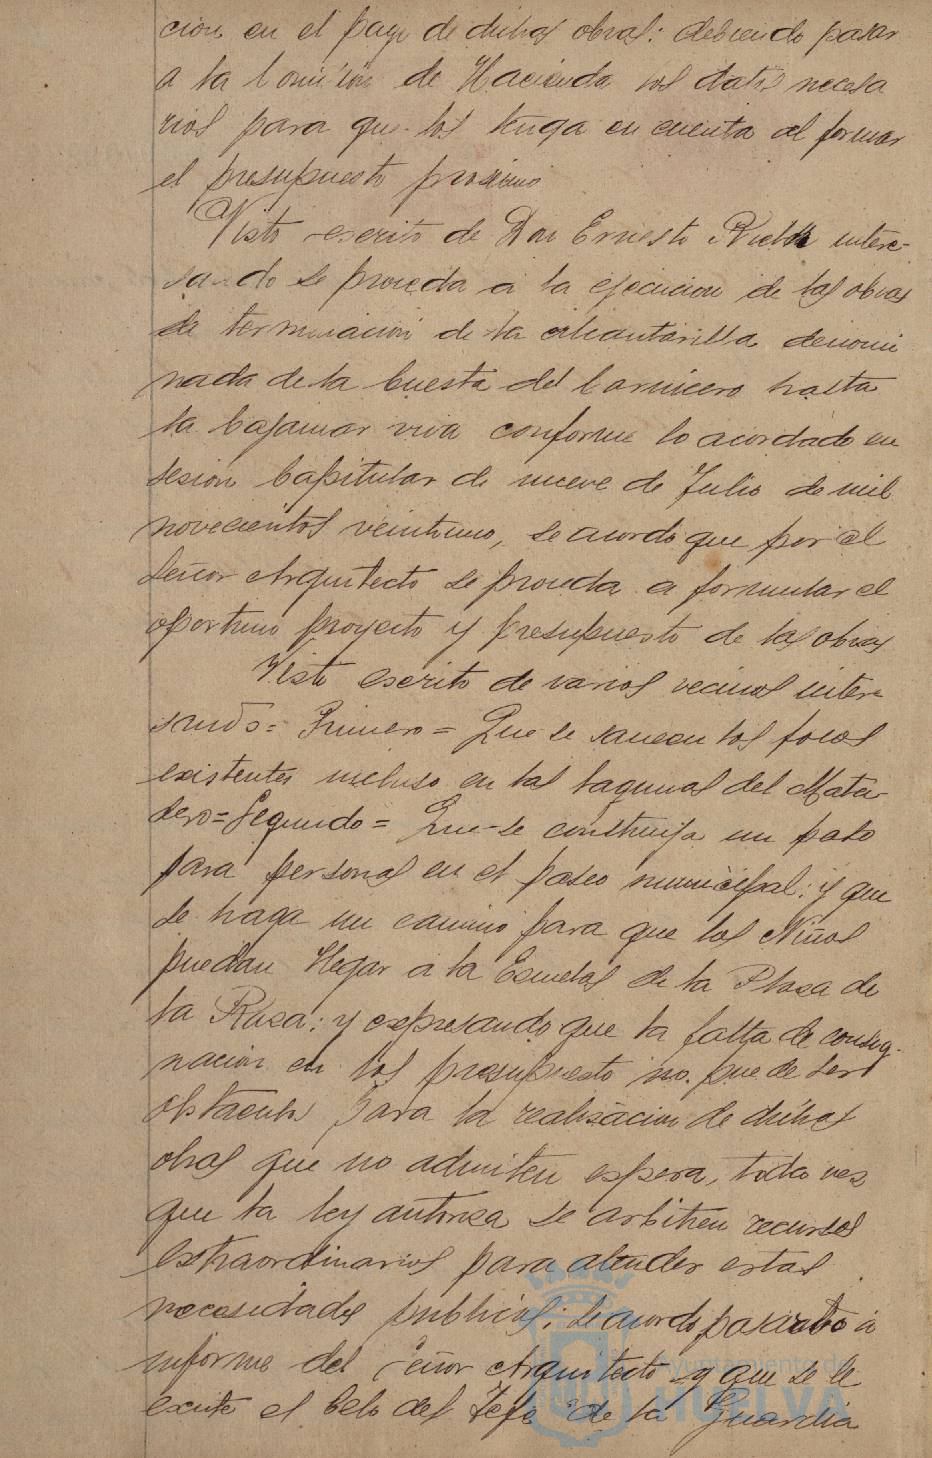 cion en el pago de dichas obras: debiendo pasar
a la Comision de Hacienda los datos necesa
rios para que los tenga en cuenta al formar
el presupuesto proximo
Visto escrito de Don Ernesto intere-
sando se proceda a la ejecucion de las obras
de terminacion de la alcantarilla denomi
nada de la Cuesta del Carnicero hasta
la bajamar viva conforme lo acordado en
sesion Capitular de nueve de Julio de mil
novecientos veintiuno, se acordo que por el
Señor Arquitecto se proceda a formular el
oportuno proyecto y presupuesto de las obras
Visto escrito de varios vecinos intere
sando= Primero= Que se saneen los focos
existentes incluso en las lagunas del Mata-
dero= Segundo= Que se construya un paso
para personas en el paseo municipal: y que
se haga un camino para que los Niños
puedan llegar a la Escuelas de la Plaza de
la Rasa: y expresando que la falta de consig-
nacion en los presupuesto no puede ser
obstaculo para la realizacion de dichas
obras que no admiten espera, toda vez
que la ley autoriza se arbitren recursos
extraordinarios para atender estas
necesidades publicas; se acordo pasarlo á
informe del Señor Arquitecto y que se le
excite el celo del Jefe de la Guardia
Ayuntamiento de
HUELVA